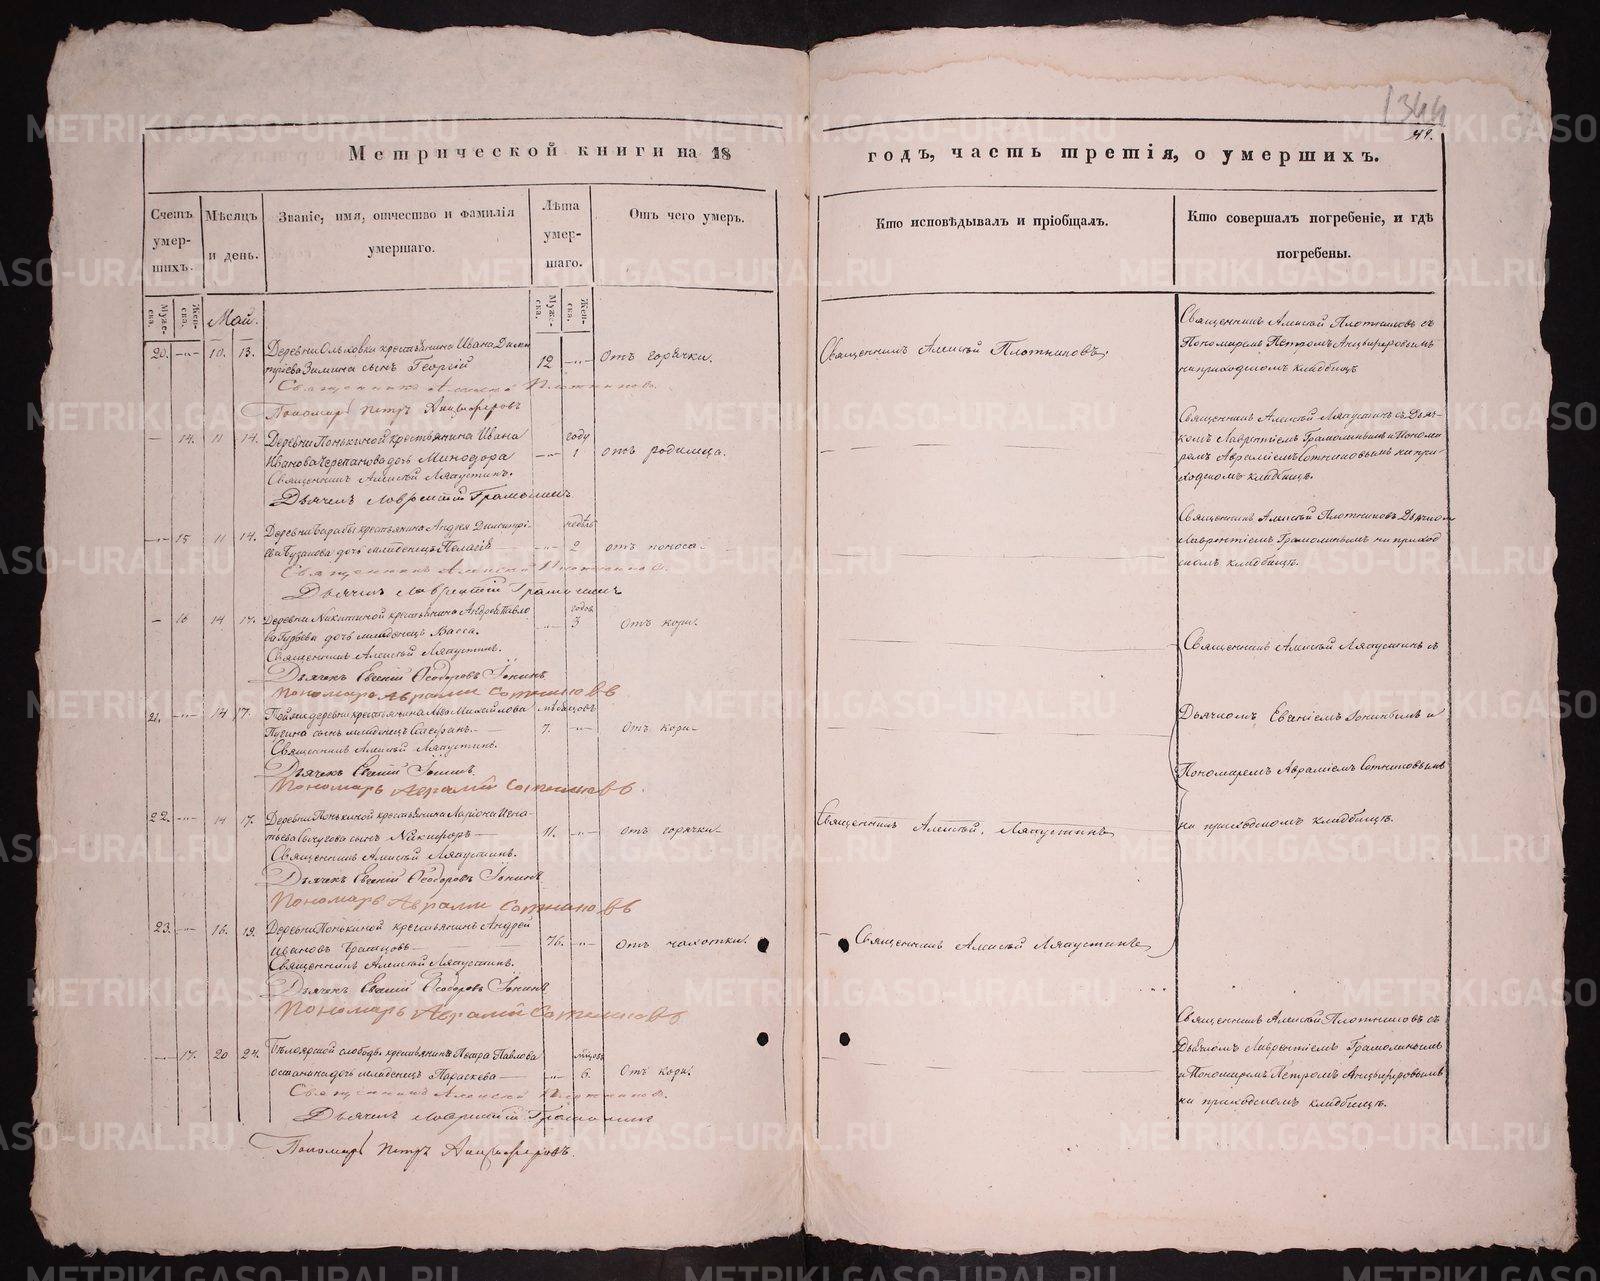 1344
49.
Метрической книги на 18
годъ, часть третія, о умершихъ.
Счетъ умер-шихъ.
Мѣсяцъ и день.
Званіе, имя, отчество и фамилія умершаго.
Лѣта умер-шаго.
Отъ чего умеръ.
Кто исповѣдывалъ и пріобщалъ.
Кто совершалъ погребеніе, и гдѣ погребены.
Муже-ска.
Жен-ска.
Муже-ска.
Жен-ска.
Май.
20. 10. 13. Деревни Ольховки крестьянина Ивана Дими
тріева Зимина сынъ Георгій 12 отъ горячки.
Священникъ Алексѣй Плотниковъ.
Священникъ Алексѣй Плотниковъ съ
Пономаремъ Петромъ Анцыферовымъ
на приходскомъ кладбищѣ
Священникъ Алексѣй Плотниковъ.
Пономарь Петръ Анцыферовъ
14. 11 14. Деревни Понькиной крестьянина Ивана
Иванова Черепанова дочь Минодора
году 1 отъ родимца.
Священникъ Алексѣй Ляпустинъ.
Дьячекъ Лаврентій Грамолинъ
Священникъ Алексѣй Ляпустинъ съ Дьяч-
комъ Лаврентіемъ Грамолинымъ и Понома
ремъ Авраміемъ Сотниковымъ на при-
ходскомъ кладбищѣ.
15 11 14. крестьянина Андрея Димитрі-
ева Пузанова дочь младенецъ Пелагія
недѣль 2 отъ поноса.
Священникъ Алексѣй Плотниковъ.
Дьячекъ Лаврентій Грамолинъ
Священникъ Алексѣй Плотниковъ Дьячко
Лаврентіемъ Грамолинымъ на приход
скомъ кладбищѣ.
16 14 17. Деревни Никитиной крестьянина Андрея Павло
ва Гурьева дочь младенецъ Васса.
годовъ 3 отъ кори.
Священникъ Алексѣй Ляпустинъ.
Дьячекъ Евгеній Ѳеодоровъ Іонинъ
Пономарь Аврамій Сотниковъ
21. 14 17. Той же деревни крестьянина Льва Михайлова
Пугина сынъ младенецъ Стефанъ.
мѣсяцовъ 7. отъ кори.
Священникъ Алексѣй Ляпустинъ.
Дьячекъ Евгеній Іонинъ.
Пономарь Аврамій Сотниковъ.
22. 14 17. Деревни Понькиной крестьянина Ларіона Игна-
тьева сынъ Никифоръ
11. отъ горячки.
Священникъ Алексѣй Ляпустинъ
Священникъ Алексѣй Ляпустинъ.
Дьячекъ Евгеній Ѳеодоровъ Іонинъ
Пономарь Аврамій Сотниковъ
23. 16. 19. Деревни Понькиной крестьянинъ Андрей
Ивановъ
76. отъ чахотки.
Священникъ Алексѣй Ляпустинъ
Священникъ Алексѣй Ляпустинъ.
Дьячекъ Евгеній Ѳеодоровъ Іонинъ
Пономарь Аврамій Сотниковъ
Священникъ Алексѣй Ляпустинъ съ
Дьячкомъ Евгеніемъ Іонинымъ и
Пономаремъ Авраміемъ Сотниковымъ
на приходскомъ кладбищѣ.
17. 20 24. Бѣлоярской слободы крестьянина Петра Павлова
Останина дочь младенецъ Параскева
мѣсяц. 6. отъ кори.
Священникъ Алексѣй Плотниковъ.
Дьячекъ Лаврентій Грамолинъ
Пономарь Петръ Анцыферовъ.
Священникъ Алексѣй Плотниковъ съ
Дьячкомъ Лаврентіемъ Грамолинымъ
и Пономаремъ Петромъ Анцыферовымъ
на приходскомъ кладбищѣ.
METRIKI.GASO-URAL.RU